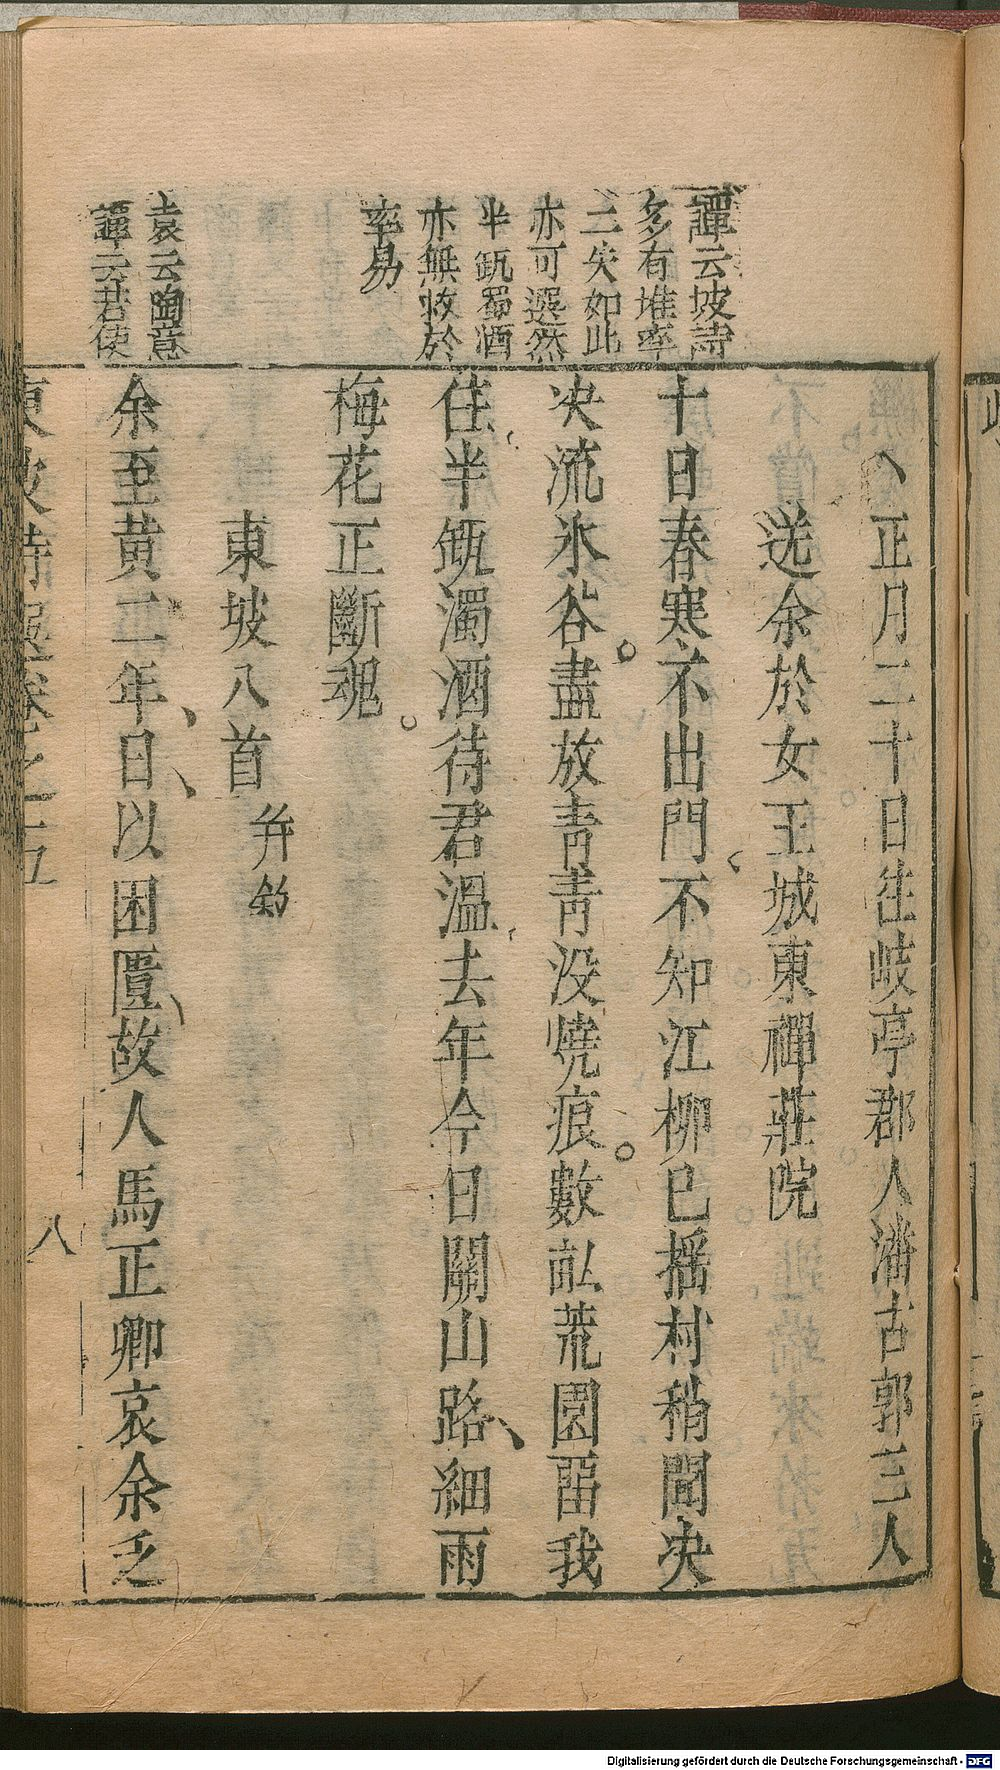 譚云坡詩
多有堆率
二失如此
亦可選然
半瓻濁酒
亦無救於
率易
袁云陶意
譚云君使
正月二十日徃岐亭郡人潘古郭三人
送余於女王城東禪莊院
十日春寒不出門不知江柳已揺村稍聞决
决流氷谷盡放靑靑没燒痕數畝荒園畱我
住半瓻濁酒待君溫去年今日關山路細雨
梅花正斷魂
東坡八首 并敘
余至黄二年日以困匱故人馬正卿哀余乏
東坡詩選卷之五
八
Digitalisierung gefördert durch die Deutsche Forschungsgemeinschaft - DFG